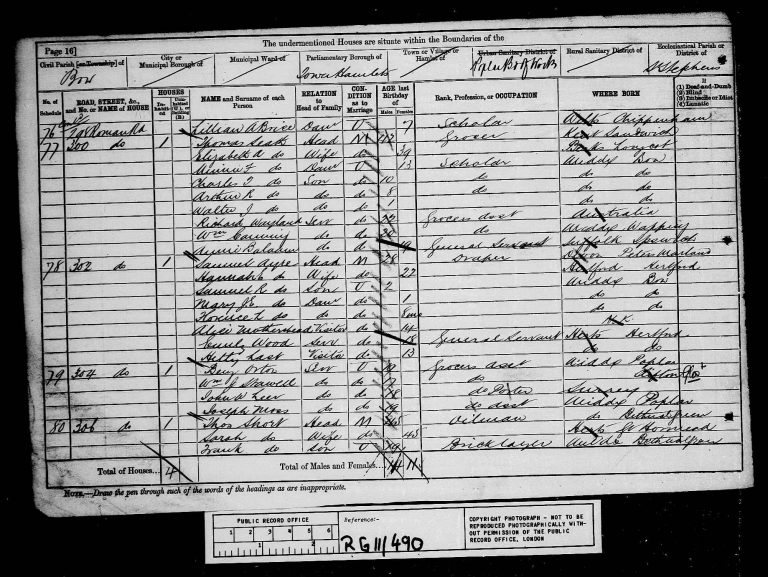 Page 16]
The undermentioned Houses are situate within the Boundaries of the
Civil Parish [or Township] of
City or Municipal Borough of
Municipal Ward of
Parliamentary Borough of
Town or Village or Hamlet of
Urban Sanitary District of
Rural Sanitary District of
Ecclesiastical Parish or District of
Bow
Tower Hamlets
St Stephens
No. of Schedule
ROAD, STREET, &c., and No. or NAME of HOUSE
HOUSES
NAME and Surname of each Person
RELATION to Head of Family
CONDITION as to Marriage
AGE last Birthday of
Males
Females
Rank, Profession, or OCCUPATION
WHERE BORN
If
(1) Deaf-and-Dumb
(2) Blind
(3) Imbecile or Idiot
(4) Lunatic
76 Roman Rd Lillian A Brice Daur U 7 Scholar Wilts Chippenham
77 300 do 1 Thomas Head M 42 Grocer Kent Sandwich
Elizabeth A do Wife do 39 Longcot
F do Daur U 13 Scholar Middx Bow
Charles T do Son do 10 do do do
Arthur R do do do 8 do do do
Walter J do do do 1 do do
Richard Wayland Serv do 22 Grocers asst Australia
Wm do do 20 do Middx Wapping
do do 19 General Servant Suffolk Ipswich
78 302 do 1 Samuel Ayre Head M 28 Draper Devon
Hannah do Wife do 22 Hertford Hertford
Samuel R do Son U 2 Middx Bow
Mary do Daur do 1 do do
Florence L do do do 8mo do do
Alice Motherhead Visitor do 14 N.K.
Emily Wood Serv do 18 General Servant Herts Hertford
Hetty Last Visitor do 13 do do
79 304 do 1 Benj Orton Serv U 19 Grocers asst Middx Poplar
Wm J do do 17 do
John do do 18 do Porter Surrey
Joseph Moss do do 19 do asst Middx Poplar
80 306 do 1 Thos Short Head M 45 Oilman do Bethnal Green
Sarah do Wife do 45 Herts
Frank do Son U 19 Bricklayer Middx Bethnal Green
Total of Houses... 4
Total of Males and Females... 14 11
NOTE.—Draw the pen through such of the words of the headings as are inappropriate.
PUBLIC RECORD OFFICE
1 2 3 4 5 6
1 2
Reference:-
RG 11/490
COPYRIGHT PHOTOGRAPH - NOT TO BE
REPRODUCED PHOTOGRAPHICALLY WITH-
OUT PERMISSION OF THE PUBLIC
RECORD OFFICE, LONDON